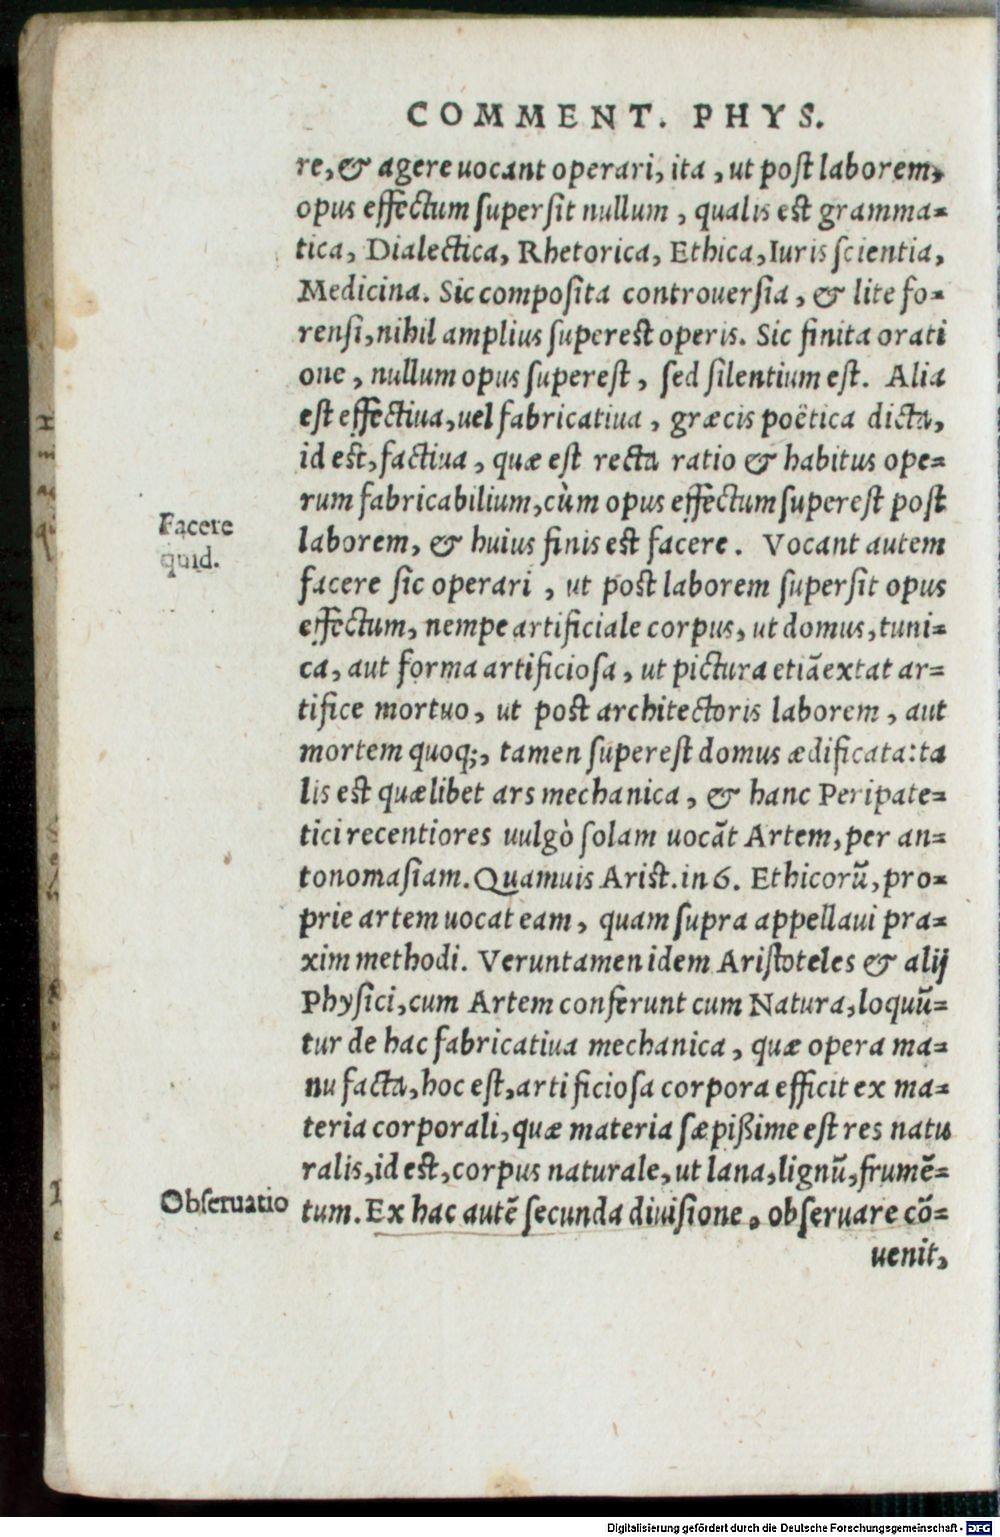 COMMENT. PHYS.
re, & agere uocant operari, ita, ut post laborem,
opus effectum supersit nullum, qualis est gramma-
tica, Dialectica, Rhetorica, Ethica, Iuris scientia,
Medicina. Sic composita controuersia, & lite fo-
rensi, nihil amplius superest operis. Sic finita orati
one, nullum opus superest, sed silentium est. Alia
est effectiua, uel fabricatiua, græcis poëtica dicta,
id est, factiua, quæ est recta ratio & habitus ope-
rum fabricabilium, cùm opus effectum superest post
Facere
quid.
laborem, & huius finis est facere. Vocant autem
facere sic operari, ut post laborem supersit opus
effectum, nempe artificiale corpus, ut domus, tuni-
ca, aut forma artificiosa, ut pictura etiã extat ar-
tifice mortuo, ut post architectoris laborem, aut
mortem quoq;, tamen superest domus ædificata: ta
lis est quælibet ars mechanica, & hanc Peripate-
tici recentiores uulgò solam uocãt Artem, per an-
tonomasiam. Quamuis Arist. in 6. Ethicorũ, pro-
prie artem uocat eam, quam supra appellaui pra-
xim methodi. Veruntamen idem Aristoteles & alij
Physici, cum Artem conferunt cum Natura, loquũ-
tur de hac fabricatiua mechanica, quæ opera ma-
nu facta, hoc est, artificiosa corpora efficit ex ma-
teria corporali, quæ materia sæpißime est res natu
ralis, id est, corpus naturale, ut lana, lignũ, frumẽ-
Obseruatio
tum. Ex hac autẽ secunda diuisione, obseruare cõ-
uenit,
Digitalisierung gefördert durch die Deutsche Forschungsgemeinschaft - DFG